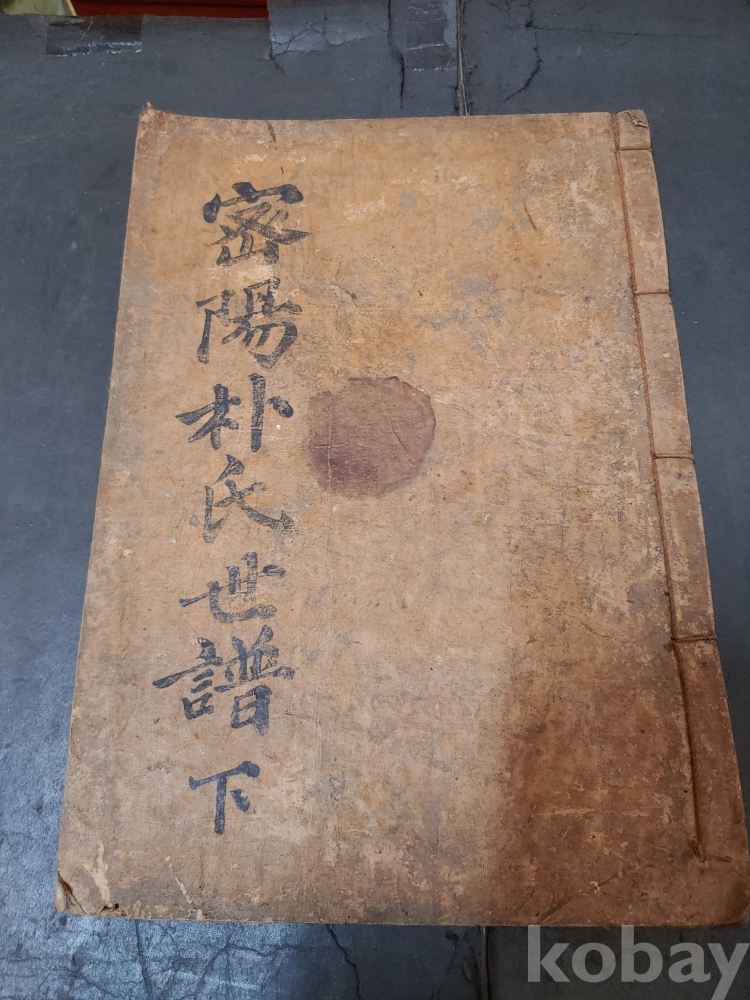 密陽朴氏世譜 下
kobay